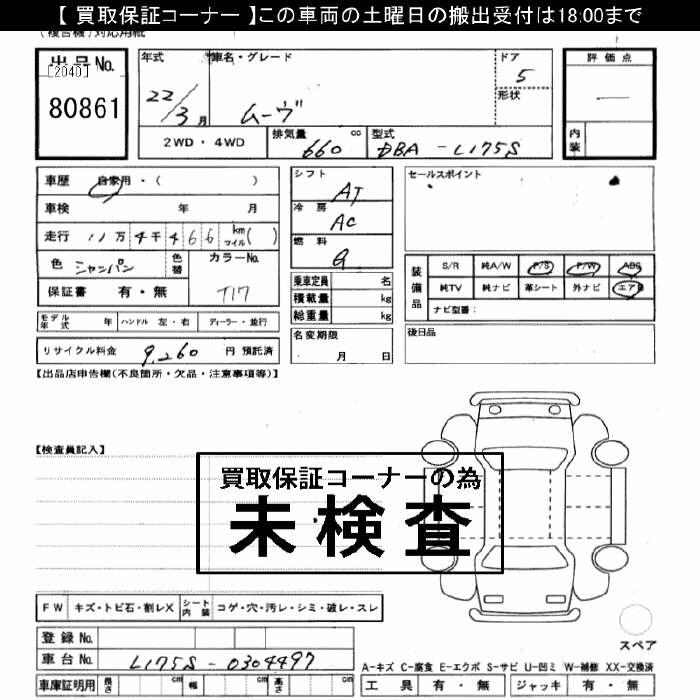 【 買取保証コーナー 】この車両の土曜日の搬出受付は18:00まで
(複合機)対応用紙
出品No.
[2040]
80861
年式
22/3月
車名・グレード
ムーヴ
ドア
5
形状
2WD・4WD
排気量
660 cc
型式
DBA-L175S
評価点
—
内装
車歴 自家用・( )
車検 年 月
走行 11万4千466 km マイル( )
色 シャンパン
色替
カラーNo.
T17
保証書 有・無
モデル年式 年
ハンドル 左・右
ディーラー・並行
リサイクル料金 9,260 円 預託済
シフト
AT
冷房
AC
燃料
G
乗車定員 名
積載量 kg
総重量 kg
名変期限
月 日
セールスポイント
装備品
S/R 純A/W P/S P/W ABS
純TV 純ナビ 革シート 外ナビ エアB
ナビ型番:
後日品
【出品店申告欄(不良箇所・欠品・注意事項等)】
【検査員記入】
買取保証コーナーの為
未検査
FW キズ・トビ石・割レX
シート内装 コゲ・穴・汚レ・シミ・破レ・スレ
登録No.
車台No. L175S-0304497
車庫証明用 長さ cm 幅 cm 高さ cm
スペア
A-キズ C-腐食 E-エクボ S-サビ U-凹ミ W-補修 XX-交換済
工具 有・無 ジャッキ 有・無